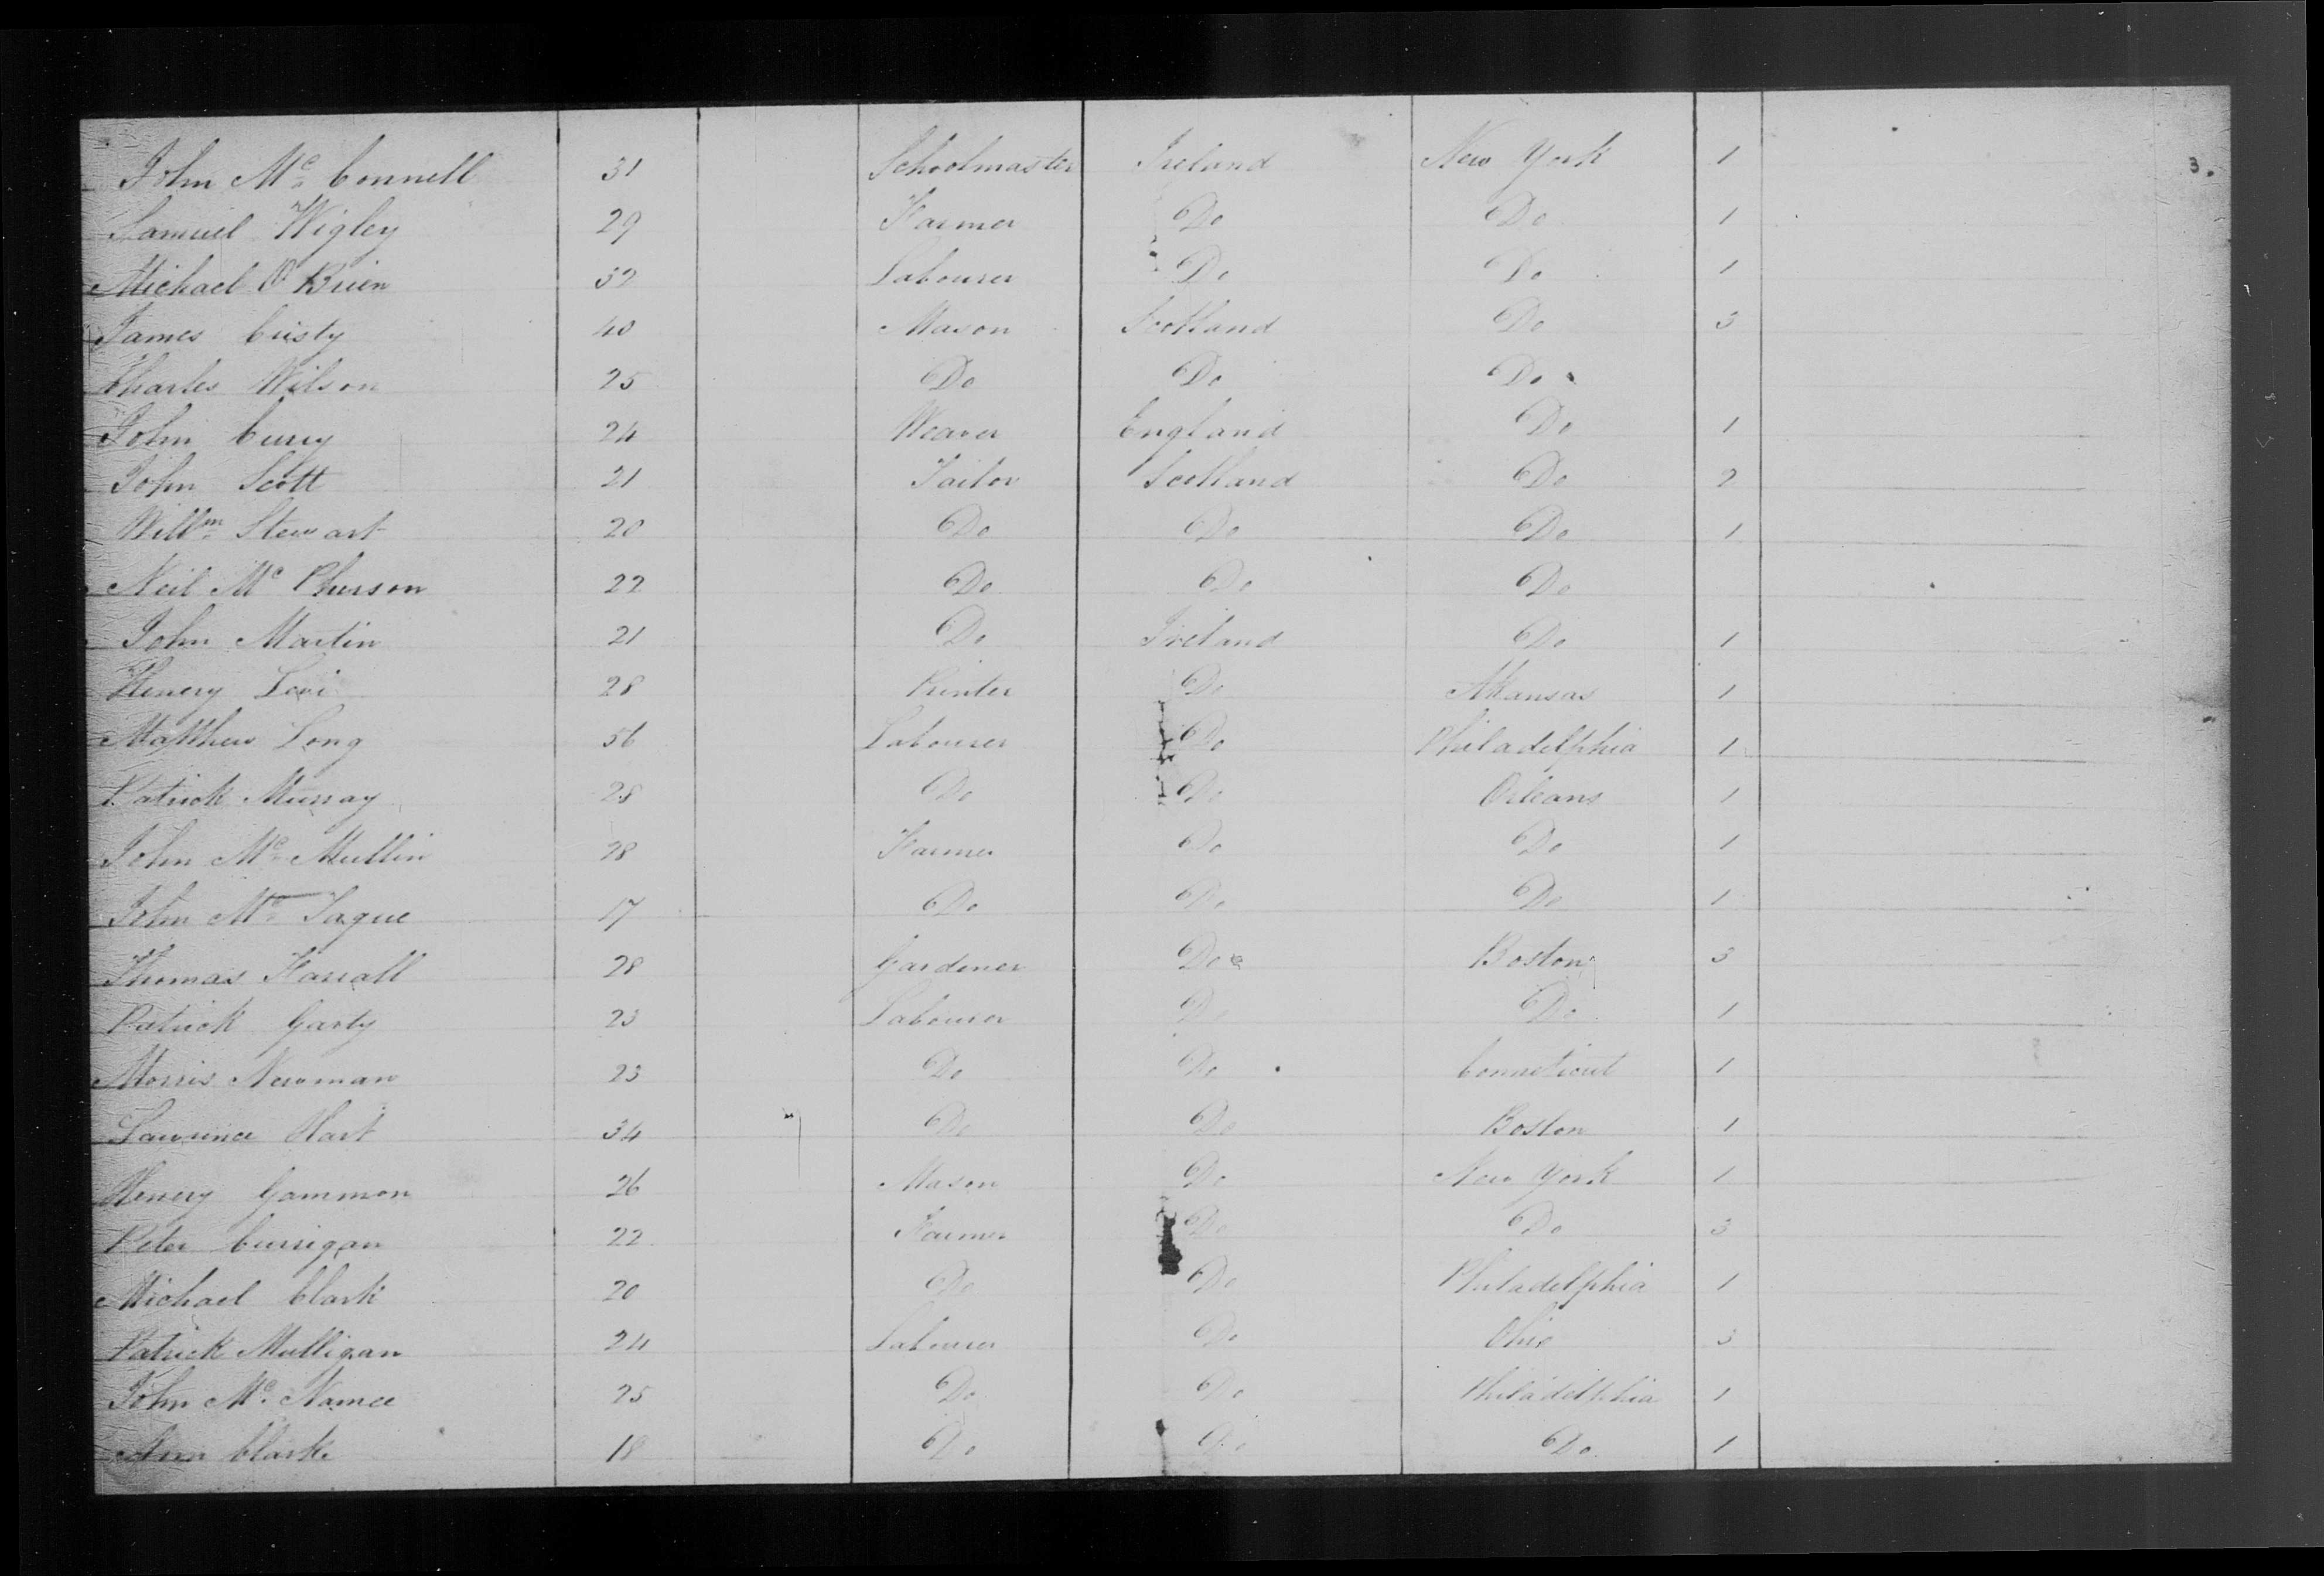 John Mc Connell 31 Schoolmaster Ireland New York 1 3.
Samuel Wigley 29 Farmer Do Do 1
Michael O Brien 32 Labourer Do Do 1
James Cristy 40 Mason Scotland Do 3
Charles Wilson 25 Do Do Do
John Curry 24 Weaver England Do 1
John Scott 21 Tailor Scotland Do 2
Willm Stewart 20 Do Do Do 1
Neil Mc Pherson 22 Do Do Do
John Martin 21 Do Ireland Do 1
Henery Levi 28 Printer Do Arkansas 1
Matthew Long 56 Labourer Do Philadelphia 1
Patrick Murray 28 Do Do Orleans 1
John Mc Mullin 28 Farmer Do Do 1
John Mc Tague 17 Do Do Do 1
Thomas Farrall 28 Gardener Do Boston 3
Patrick Garty 23 Labourer Do Do 1
Morris Newman 23 Do Do Conneticut 1
Lawrence Hart 34 Do Do Boston 1
Henery Gammon 26 Mason Do New York 1
Peter Currigan 22 Farmer Do Do 3
Michael Clark 20 Do Do Philadelphia 1
Patrick Mulligan 24 Labourer Do Ohio 3
John Mc Namee 25 Do Do Philadelphia 1
Ann Clark 18 Do Do Do 1